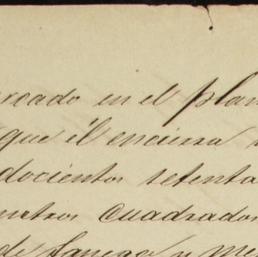 rcado en el plan
que él encierra
docientos setenta
metros cuadrados
de fanega y me